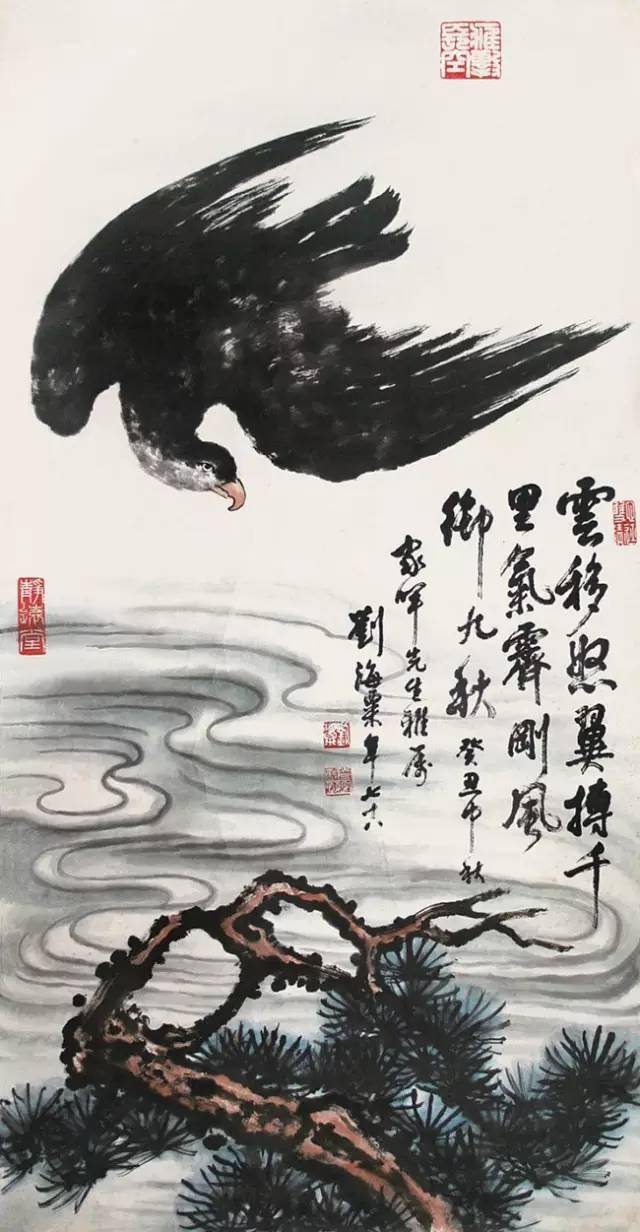 雲移怒翼搏千
里氣霽剛風
御九秋 癸丑中秋
家先生雅属
劉海粟年七十八
靜遠堂